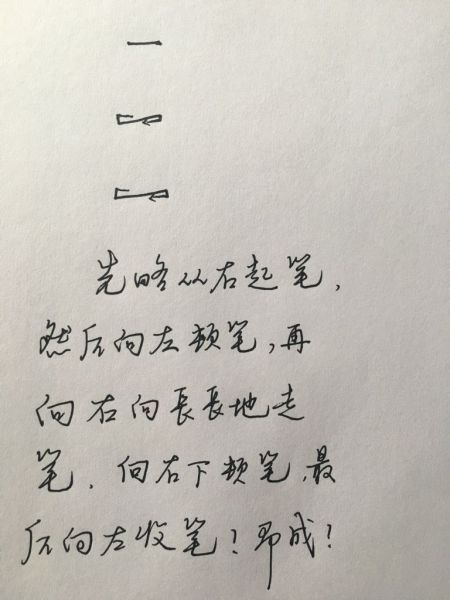 一
先略从右起笔，
然后向左顿笔，再
向右向長長地走
笔，向右下顿笔，最
后向左收笔！即成！